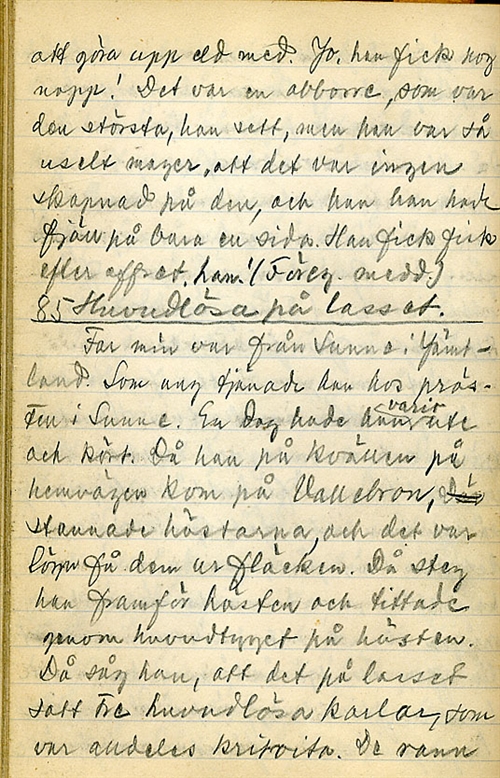 att göra upp eld med. Jo, han fick nog
napp! Det var en abborre, som var
den största, han sett, men han var så
uselt mager, att det var ingen
skapnad på den, och han han hade
fjäll på bara en sida. Han fick fisk
efter offret, han! (Föreg. medd.)
85 Huvudlösa på lasset.
Far min var från Sunne i Jämt-
land. Som ung tjänade han hos präs-
ten i Sunne. En dag hade han varit ute
och kört. Då han på kvällen på
hemvägen kom på Vallebron,
stannade hästarna, och det var
få dem ur fläcken. Då steg
han framför hästen och tittade
genom huvudtyget på hästen.
Då såg han, att det på lasset
satt tre huvudlösa karlar, som
var alldeles kritvita. De vann